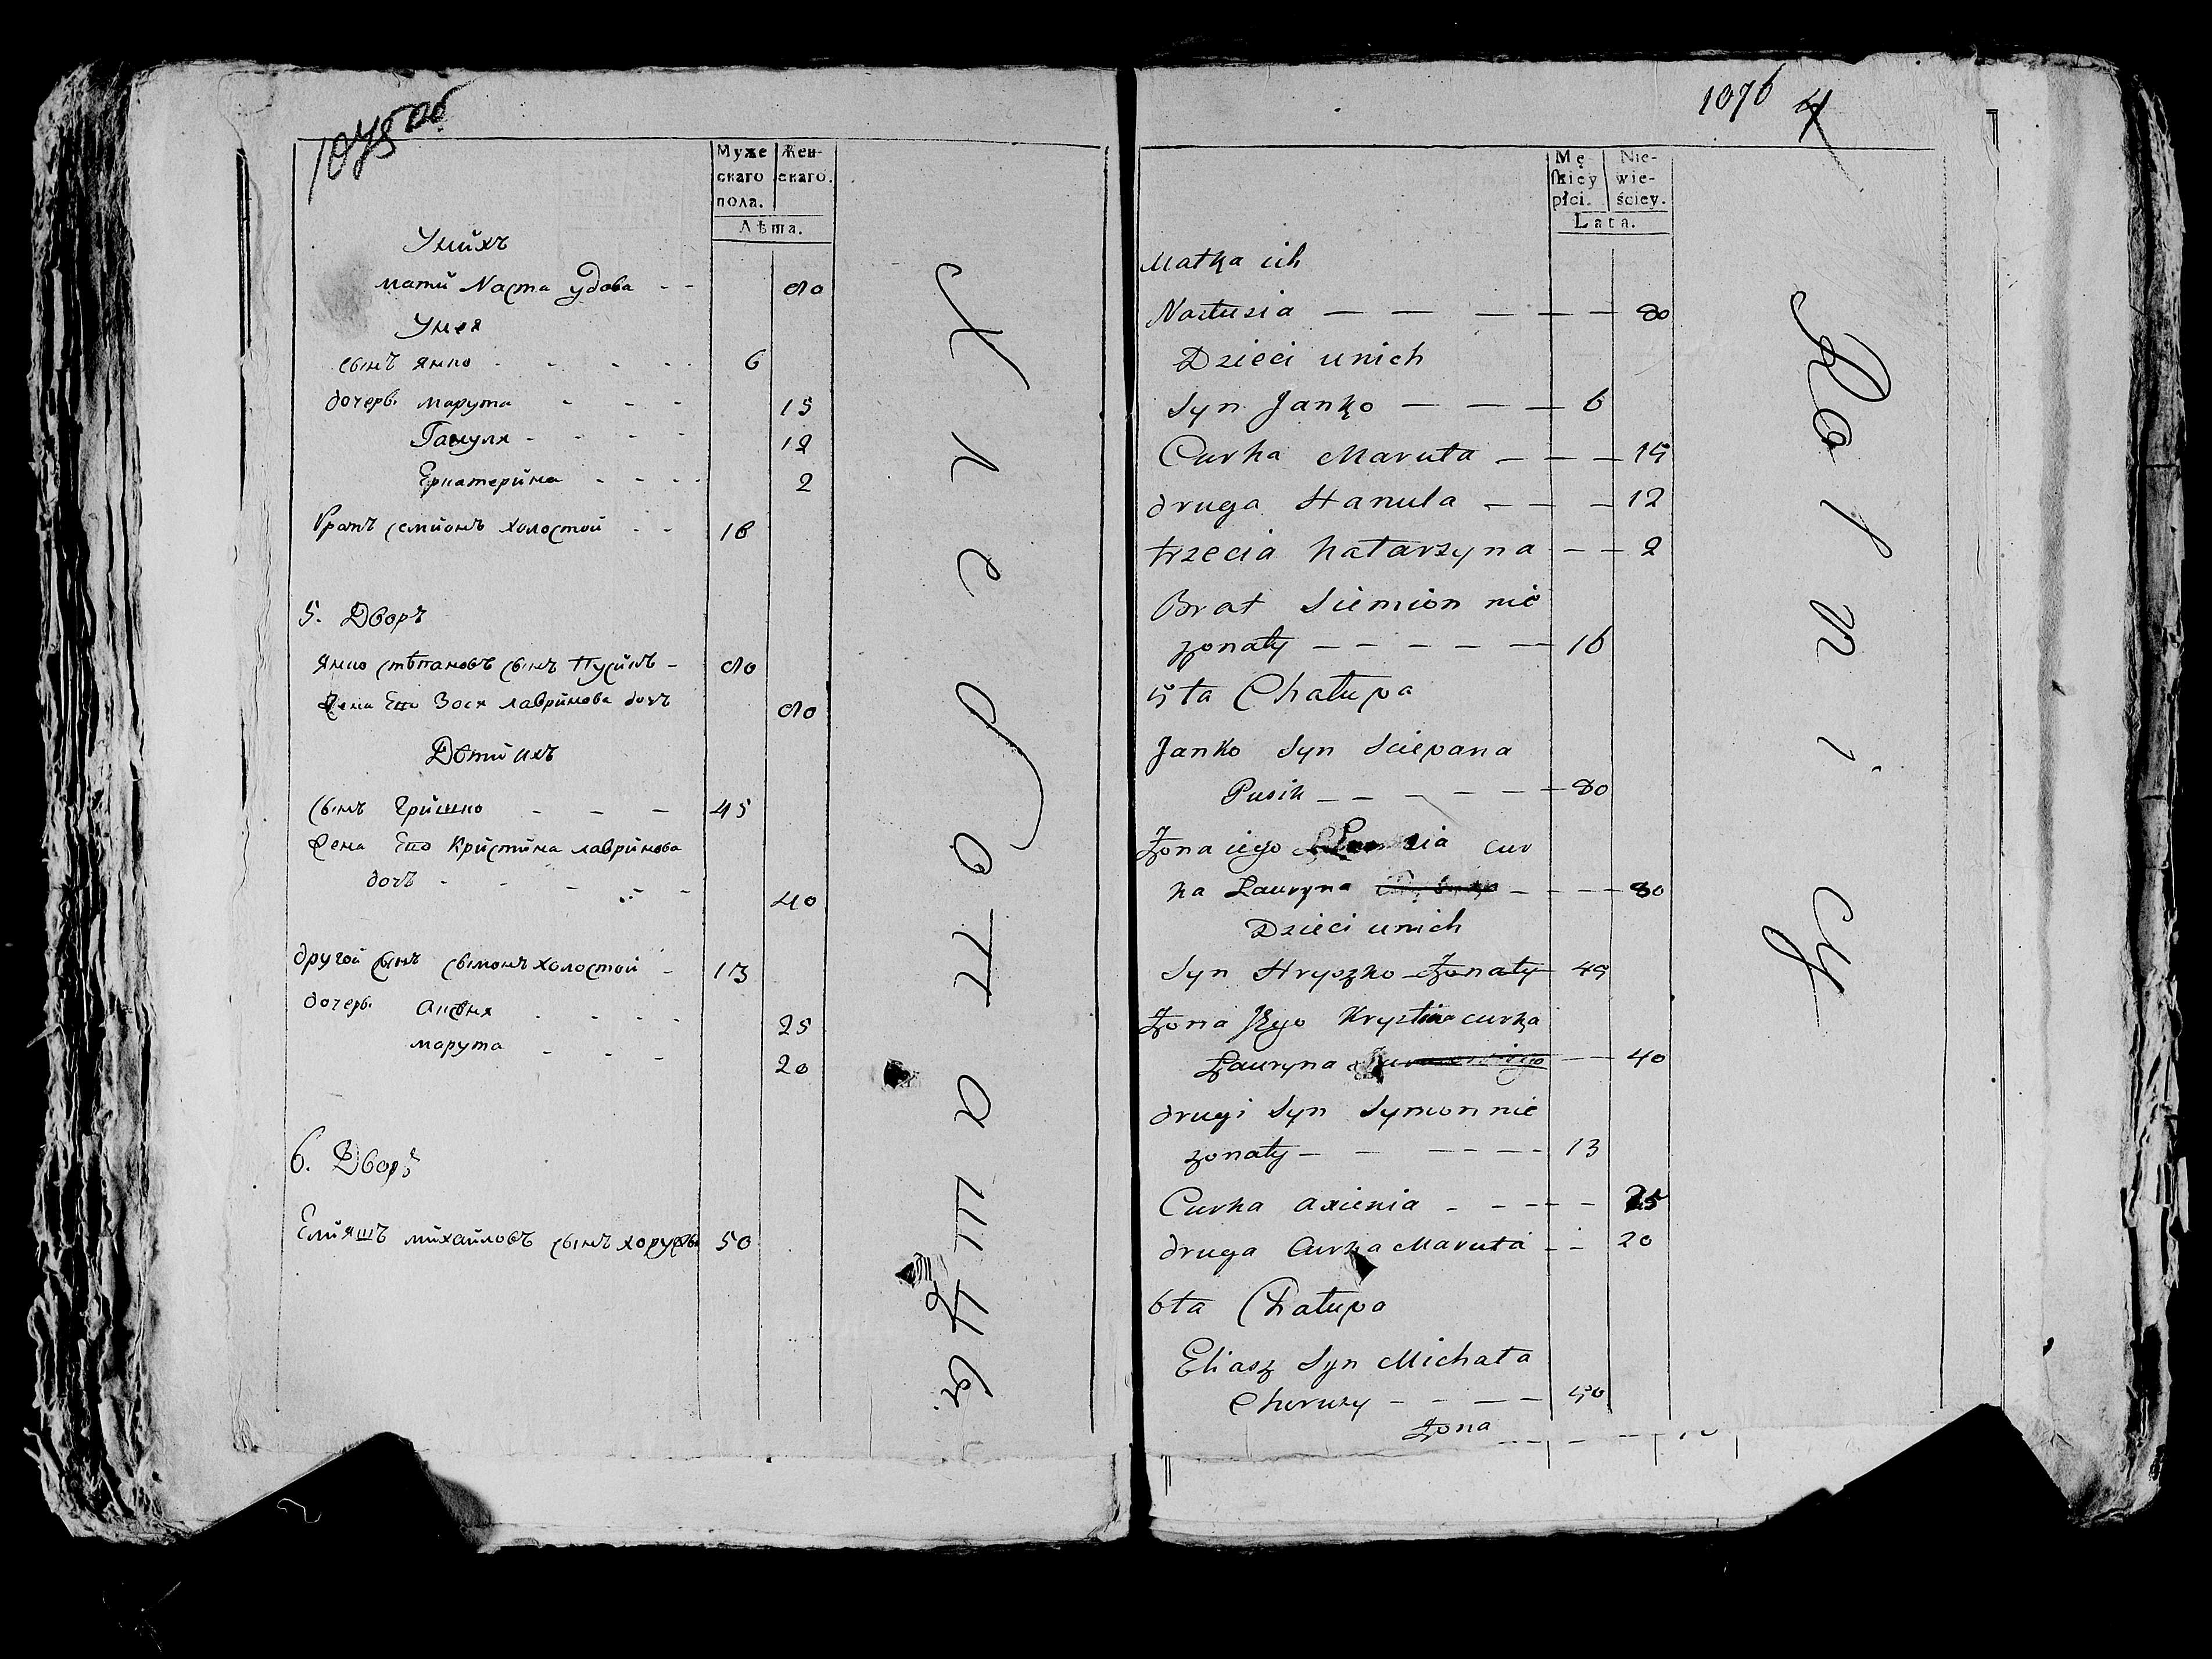 1075 об
Муже
скаго
пола.
Жен-
скаго.
Лѣта.
Унихъ
мати Наста удова - - 80
Унея
сынъ Янко - - - - 6
дочерь Марута - - - 15
Ганула - - - - 12
Екатерина - - - - 2
братъ Семионъ холостой - - 16
5. Дворъ
Янко Стѣпановъ сынъ Пусикъ - 80
Жена Его Зося лавринова дочъ 80
Дѣти ихъ
сынъ Гришко - - - 45
Жена Его Кристина лавринова
дочъ - - - - - 40
другой сынъ Сымонъ холостой - 13
дочерь Аксѣня - - - - 25
марута - - - 20
6. Дворъ
Елияшъ михайловъ сынъ хоружы 50
Хлеборошцы
1076 4
Mę-
skiey
płci.
Nie-
wie-
ściey.
Lata.
Matka ich
Nastusia — — — — — 80
Dzieci unich
Syn Janko — — — 6
Curka Maruta — — — 15
druga Hanula — — — 12
trzecia Katarzyna — — 2
Brat Siemion nie
zonaty — — — — — 16
5ta Chałupa
Janko Syn Sciepana
Pusik — — — — — 80
Zona iego cur
ka Lauryna — — — — 80
Dzieci unich
Syn Hryszko zonaty 45
Zona Jego Krystina curka
Lauryna — — 40
drugi Syn Symon nie
zonaty — — — — — 13
Curka Axienia - - - - - 25
druga Curka Maruta - - 20
6ta Chałupa
Eliasz Syn Michała
Choruzy - - - — 50
Zona
Rolnicy